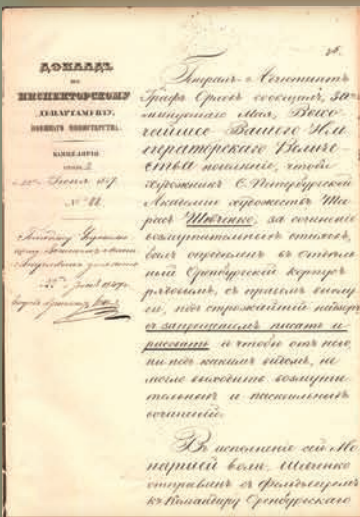 ДОКЛАДЪ
ПО
ИНСПЕКТОРСКОМУ
ДЕПАРТАМЕНТУ
ВОЕННАГО МИНИСТЕРСТВА.
КАНЦЕЛЯРІЯ
Іюня
№
Генералъ-Адъютантъ
Графъ Орловъ сообщилъ, 30
минувшаго Мая, Высо
чайшее Вашего Им
ператорскаго Величе
ства повелѣніе, чтобы
художникъ С. Петербургской
Академіи художествъ Та
расъ Шевченко, за сочиненіе
возмутительныхъ стиховъ,
былъ опредѣленъ въ отдѣль
ный Оренбургскій корпусъ
рядовымъ, съ правомъ выслу
ги, подъ строжайшій надзоръ
съ запрещеніемъ писать и
рисовать и чтобы отъ него,
ни подъ какимъ видомъ, не
могло выходить возмути
тельныхъ и пасквильныхъ
сочиненій.
Въ исполненіе сей Мо
наршей воли, Шевченко
отправленъ съ фельдъегеремъ
къ Командиру Оренбургскаго